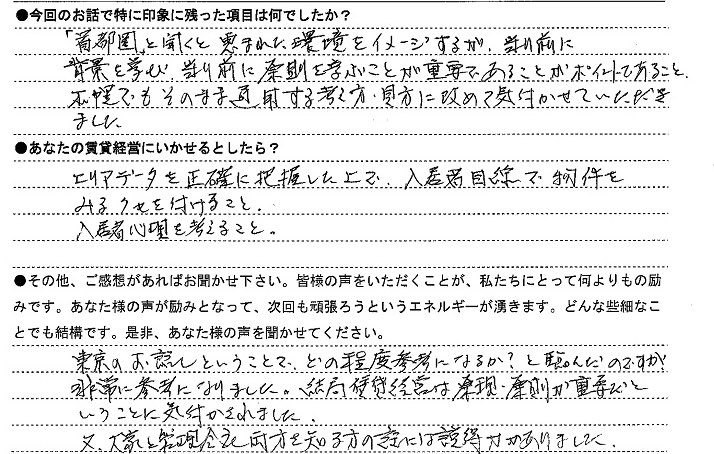 ●今回のお話で特に印象に残った項目は何でしたか？
「首都圏」と聞くと恵まれた環境をイメージするが、当り前に
背景を学び、当り前に原則を学ぶことが重要であることがポイントであること、
でもそのまま通用する考え方・見方に改めて気付かせていただき
ました
●あなたの賃貸経営にいかせるとしたら？
エリアデータを正確に把握した上で、入居者目線で物件を
みるクセを付けること。
入居者心理を考えること。
●その他、ご感想があればお聞かせ下さい。皆様の声をいただくことが、私たちにとって何よりもの励
みです。あなた様の声が励みとなって、次回も頑張ろうというエネルギーが湧きます。どんな些細なこ
とでも結構です。是非、あなた様の声を聞かせてください。
東京のお話しということで、どの程度参考になるか？と臨んだのですが
非常に参考になりました。結局賃貸経営は原理・原則が重要だと
いうことに気付かされました。
又、大家と管理会社両方を知る方の話には説得力がありました。